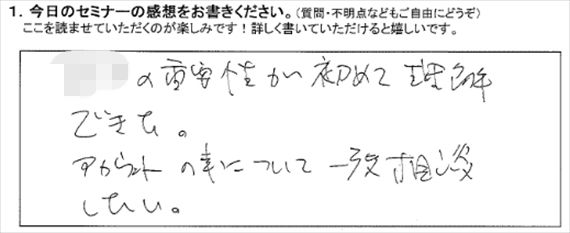 1. 今日のセミナーの感想をお書きください。（質問・不明点などもご自由にどうぞ）
ここを読ませていただくのが楽しみです！詳しく書いていただけると嬉しいです。
の重要性が初めて理解
できた。
アカウントの事について一度相談
したい。